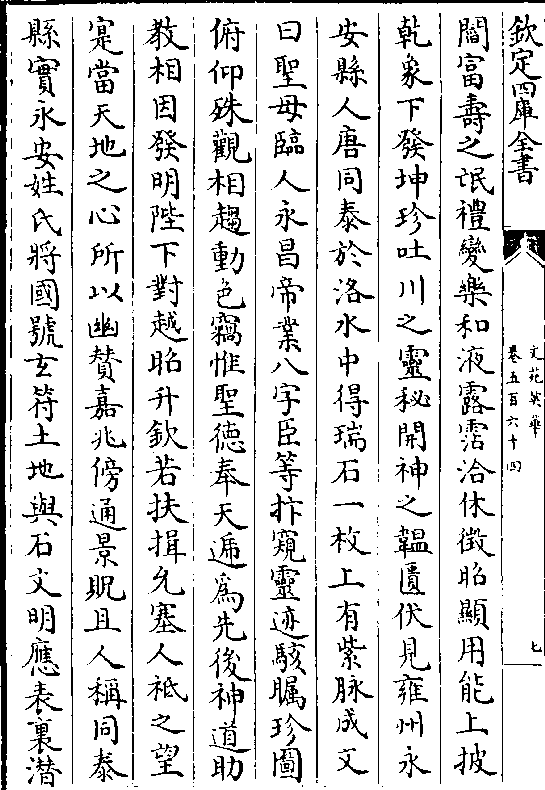 欽定四庫全書
文苑英華
卷五百六十四
七
閻富壽之氓禮變樂和液露霑洽休徵昭顯用能上披
乾象下發坤珍吐川之靈秘開神之韞匵伏見雍州永
安縣人唐同泰於洛水中得瑞石一枚上有紫脉成文
曰聖母臨人永昌帝業八字臣等抃窺靈迹駭矚珍圖
俯仰殊觀相趨動色竊惟聖德奉天遞為先後神道助
教相因發明陛下對越昭升欽若扶揖允塞人祇之望
寔當天地之心所以幽贊嘉兆傍通景貺且人稱同泰
縣實永安姓氏將國號玄符土地與石文明應表裏潜